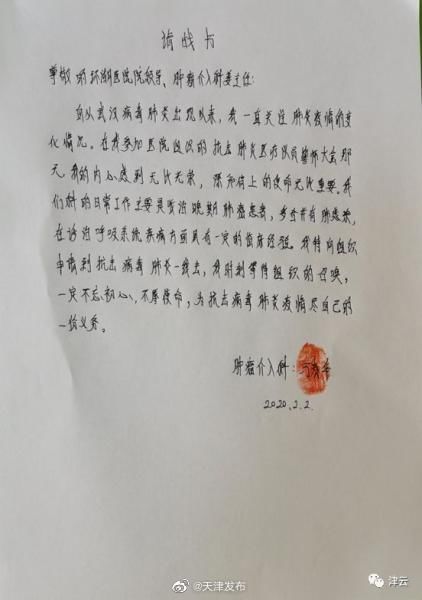 请战书
尊敬的环湖医院院领导、肿瘤介入科姜主任:
自从武汉病毒肺炎出现以来,我一直关注肺炎疫情的变
化情况。在我参加医院组织的抗击肺炎医疗队员誓师大会那
天,我的内心感到无比光荣,深知肩上的使命无比重要。我
们科的日常工作主要是医治晚期肺癌患者,多合并有肺感染,
在诊治呼吸系统疾病方面具有一定的临床经验。我特向组织
申请到抗击病毒肺炎一线去,我时刻等待组织的召唤,
一定不忘初心、不辱使命,为抗击病毒肺炎疫情尽自己的
一份义务。
肿瘤介入科:
2020.2.2.
@天津发布
津云